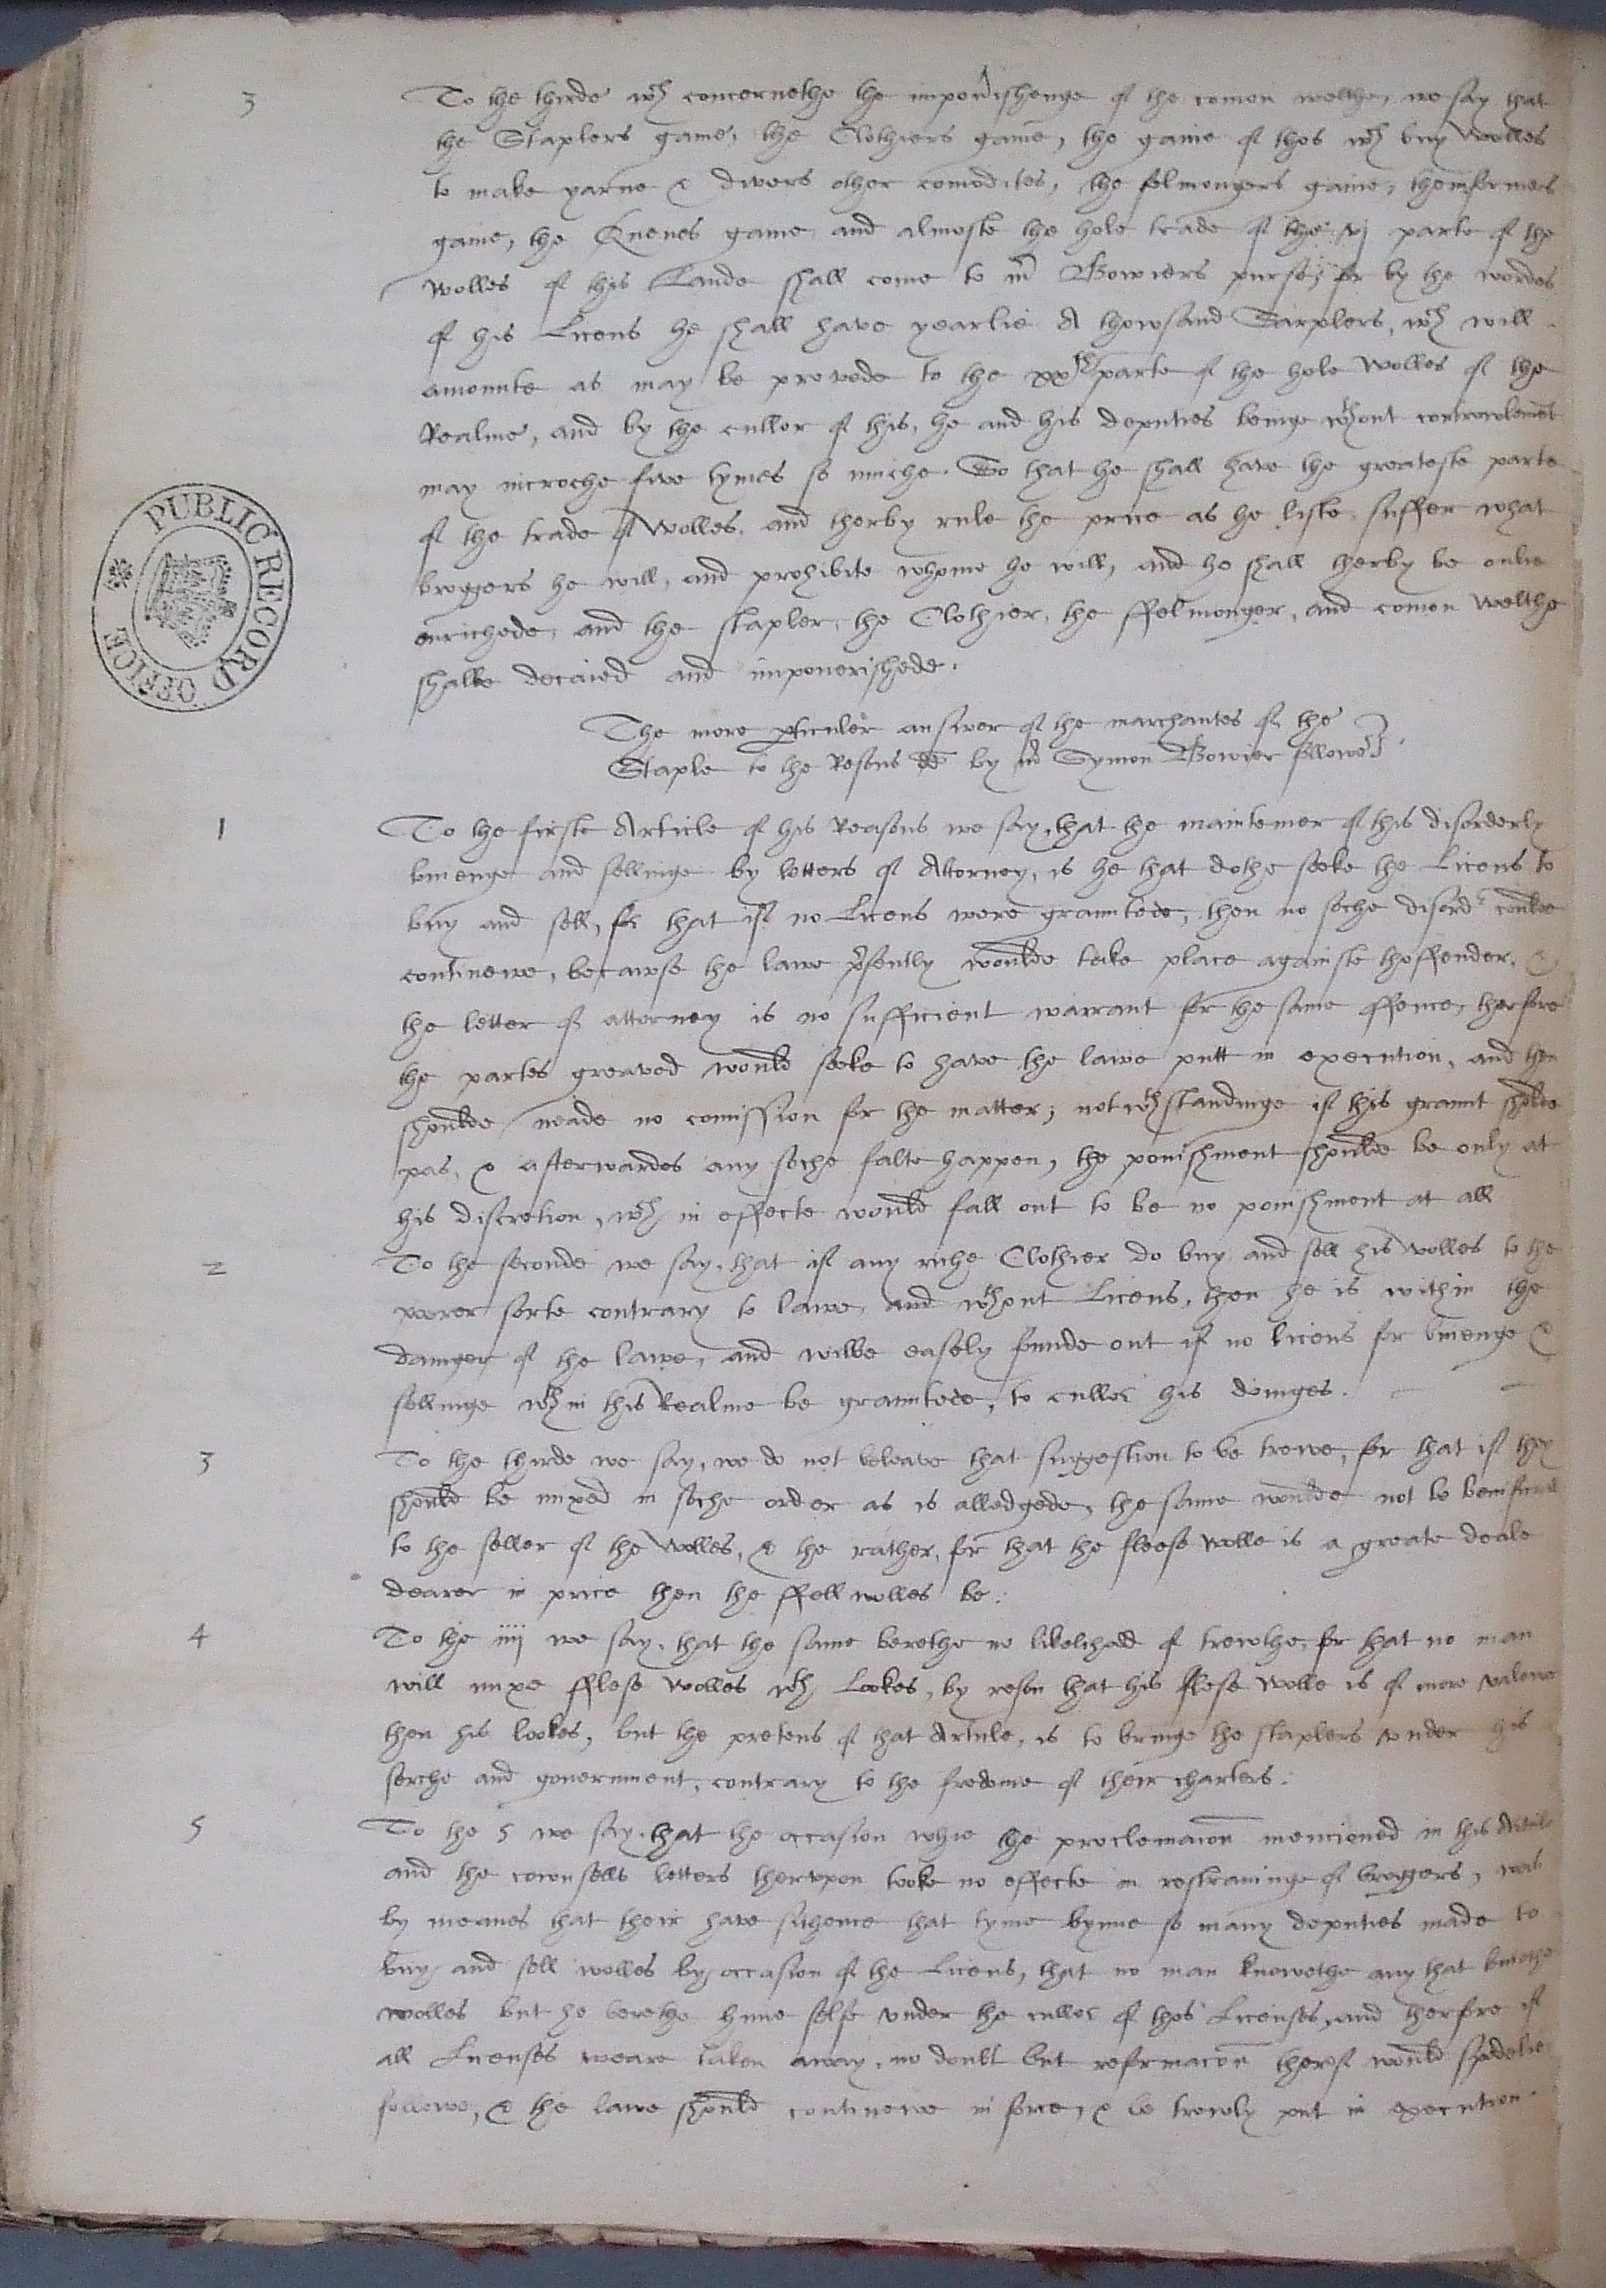 3 To the thirde wch concernethe the impov^ishenge of the comon welthe, we say that
the Staplers game, the Clothiers gaine, the gaine of thos wch buy wolles
to make yarne & divers other comodites, the felmongers gaine, themformers
gaine, the Quenes gaine, and almoste the hole trade of the vj parte of the
wolles of this Lande shall come to mr Bowiers purse, for by the wordes
of his Licens he shall have yearlie A thowsand Sarplers, wch will
amounte as may be provede to the xxth parte of the hole wolles of the
Realme, and by the culler of this, he and his deputies beinge wthout controwlemet
may incroche five tymes so muche. So that he shall have the greateste parte
of the trade of wolles, and therby rule the price as he liste, suffer what
broggers he will, and prohibite whome he will, and he shall therby be onlie
enrichede, and the stapler, the Clothier, the ffelmonger, and comon welthe
shalbe decaied and impouerishede.
The more pticuler answer of the marchantes of the
Staple to the Resons dd by mr Symon Bowier followeth.
1 To the firste Article of his Reasons we say, that the mainteiner of this disorderly
buienge and sellinge by letters of Attorney, is he that dothe seeke the Licens to
buy and sell, for that if no Licens were grauntede, then no soche disordr coulde
continewe, becawse the lawe psently woulde take place againste thoffender, &
the letter of attorney is no sufficient warrant for the same offence, therfore
the partes greaved would seeke to have the lawe putt in execution, and then
shoulde neade no comission for the matter, notwthstandinge if this graunt sholde
pas, & afterwardes any soche falte happen, the ponishment shoulde be only at
his discretion, wch in effecte would fall out to be no ponishment at all
2 To the seconde we say, that if any riche Clothier do buy and sell his wolles to the
porer sorte contrary to lawe, and wthout Licens, then he is within the
daunger of the lawe, and wilbe easely founde out if no licens for buienge &
sellinge wthin this Realme be grauntede, to culler his doinges.
3 To the thirde we say, we do not beleave that suggestion to be trewe, for that if they
should be mixed in soche order as is alledgede, the same woulde not be benificiall
to the seller of the wolles, & the rather, for that the fleese wolle is a greate deale
dearer in price then the ffell wolles be.
4 To the iiij we say, that the same berethe no likelihadd of trewthe, for that no man
will mixe fflese wolles wth Lookes, by reson that his flese wolle is of more valewe
then his lookes, but the pretens of that Article, is to bringe the staplers vnder his
serche and gouernment, contrary to the fredome of their charters.
5 To the 5 we say, that the occasion whie the proclemacon mencioned in this Article
and the cownsells letters thervpon tooke no effecte in restraininge of broggers, was
by meanes that their have sithence that tyme bynne so many deputies made to
buy and sell wolles by occasion of the Licens, that no man knowethe any that buiethe
wolles but he berethe hime selfe vnder the culler of thos Licenses, and therfore if
all Licenses weare taken away, no doubt but reformacon therof would spedelie
followe, & the lawe should continewe in force, & be trewly put in execution
PUBLIC RECORD OFFICE